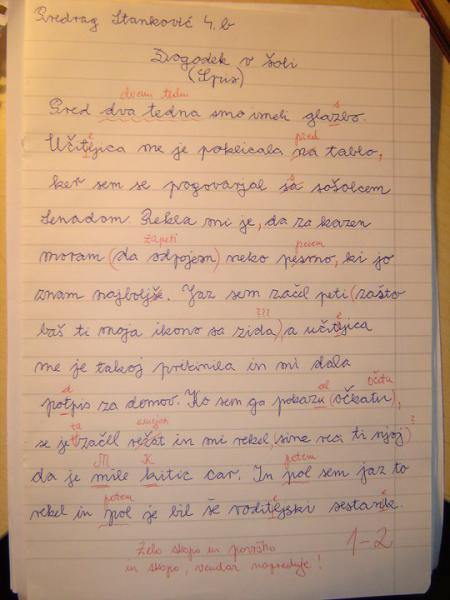 Predrag Stanković 4. b
Dogodek v šoli
(Spis)
dvem tedni
s
Pred dva tedna smo imeli glazbo.
e pred
Učitjica me je poklicala na tablo,
s
ker sem se pogovarjal sa sošolcem
Senadom. Rekla mi je, da za kazen
zapeti pesem
moram (da odpojem) neko pesmo, ki jo
znam najboljše. Jaz sem začel peti (zašto
??? e
baš ti moja ikono sa zida), a učitjica
me je takoj prekinila in mi dala
d al očetu
potpis za domov. Ko sem ga pokazu (očkatu),
ta smejati ?
se je začell režat in mi rekel, (sine reci ti njoj)
M K potem
da je mile kitic car. In pol sem jaz to
potem e e
rekel in pol je bil še roditejski sestank.
Zelo skopo in površno
in skopo, vendar napreduje!
1-2